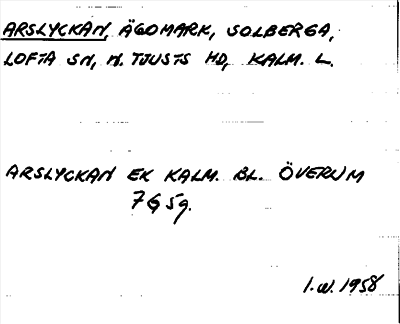 ARSLYCKAN, ÄGOMARK, SOLBERGA,
LOFTA SN, N. TJUSTS HD, KALM. L.
ARSLYCKAN EK KALM. BL. ÖVERUM
7G 5g.
I.W. 1958